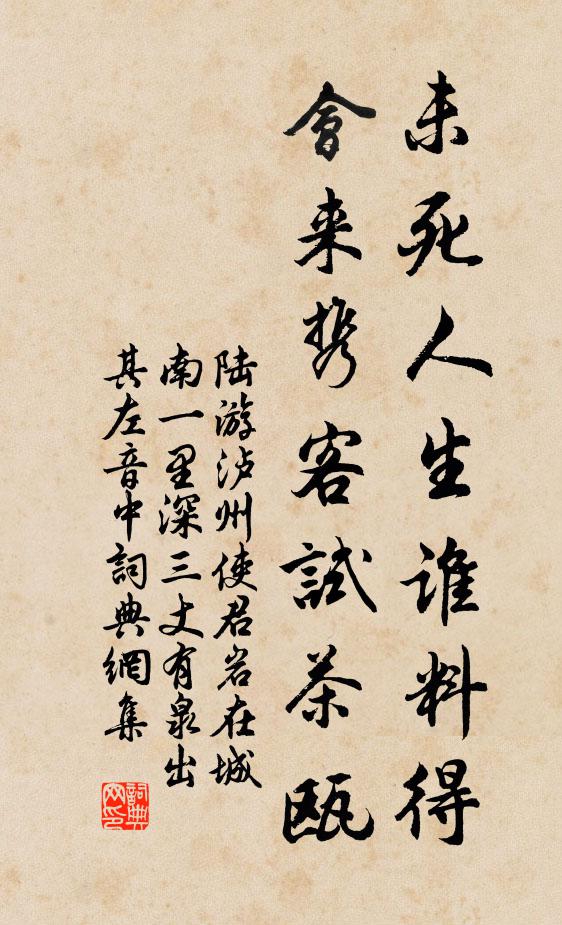 未死人生谁料得
會来携客試茶瓯
陆游泸州使君岩在城
南一里深三丈有泉出
其左音中詞典網集
詞典
网印